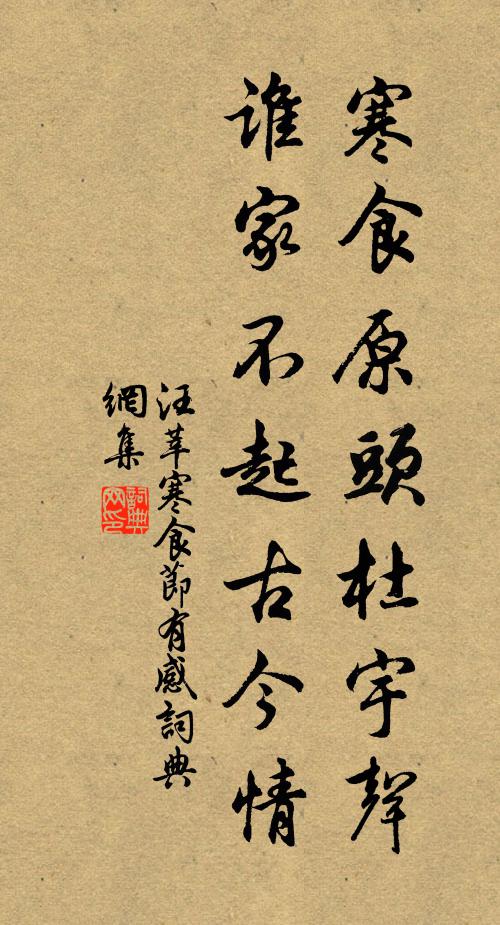 寒食原頭杜宇聲
誰家不起古今情
汪莘寒食節有感詞典
網集
詞典網印